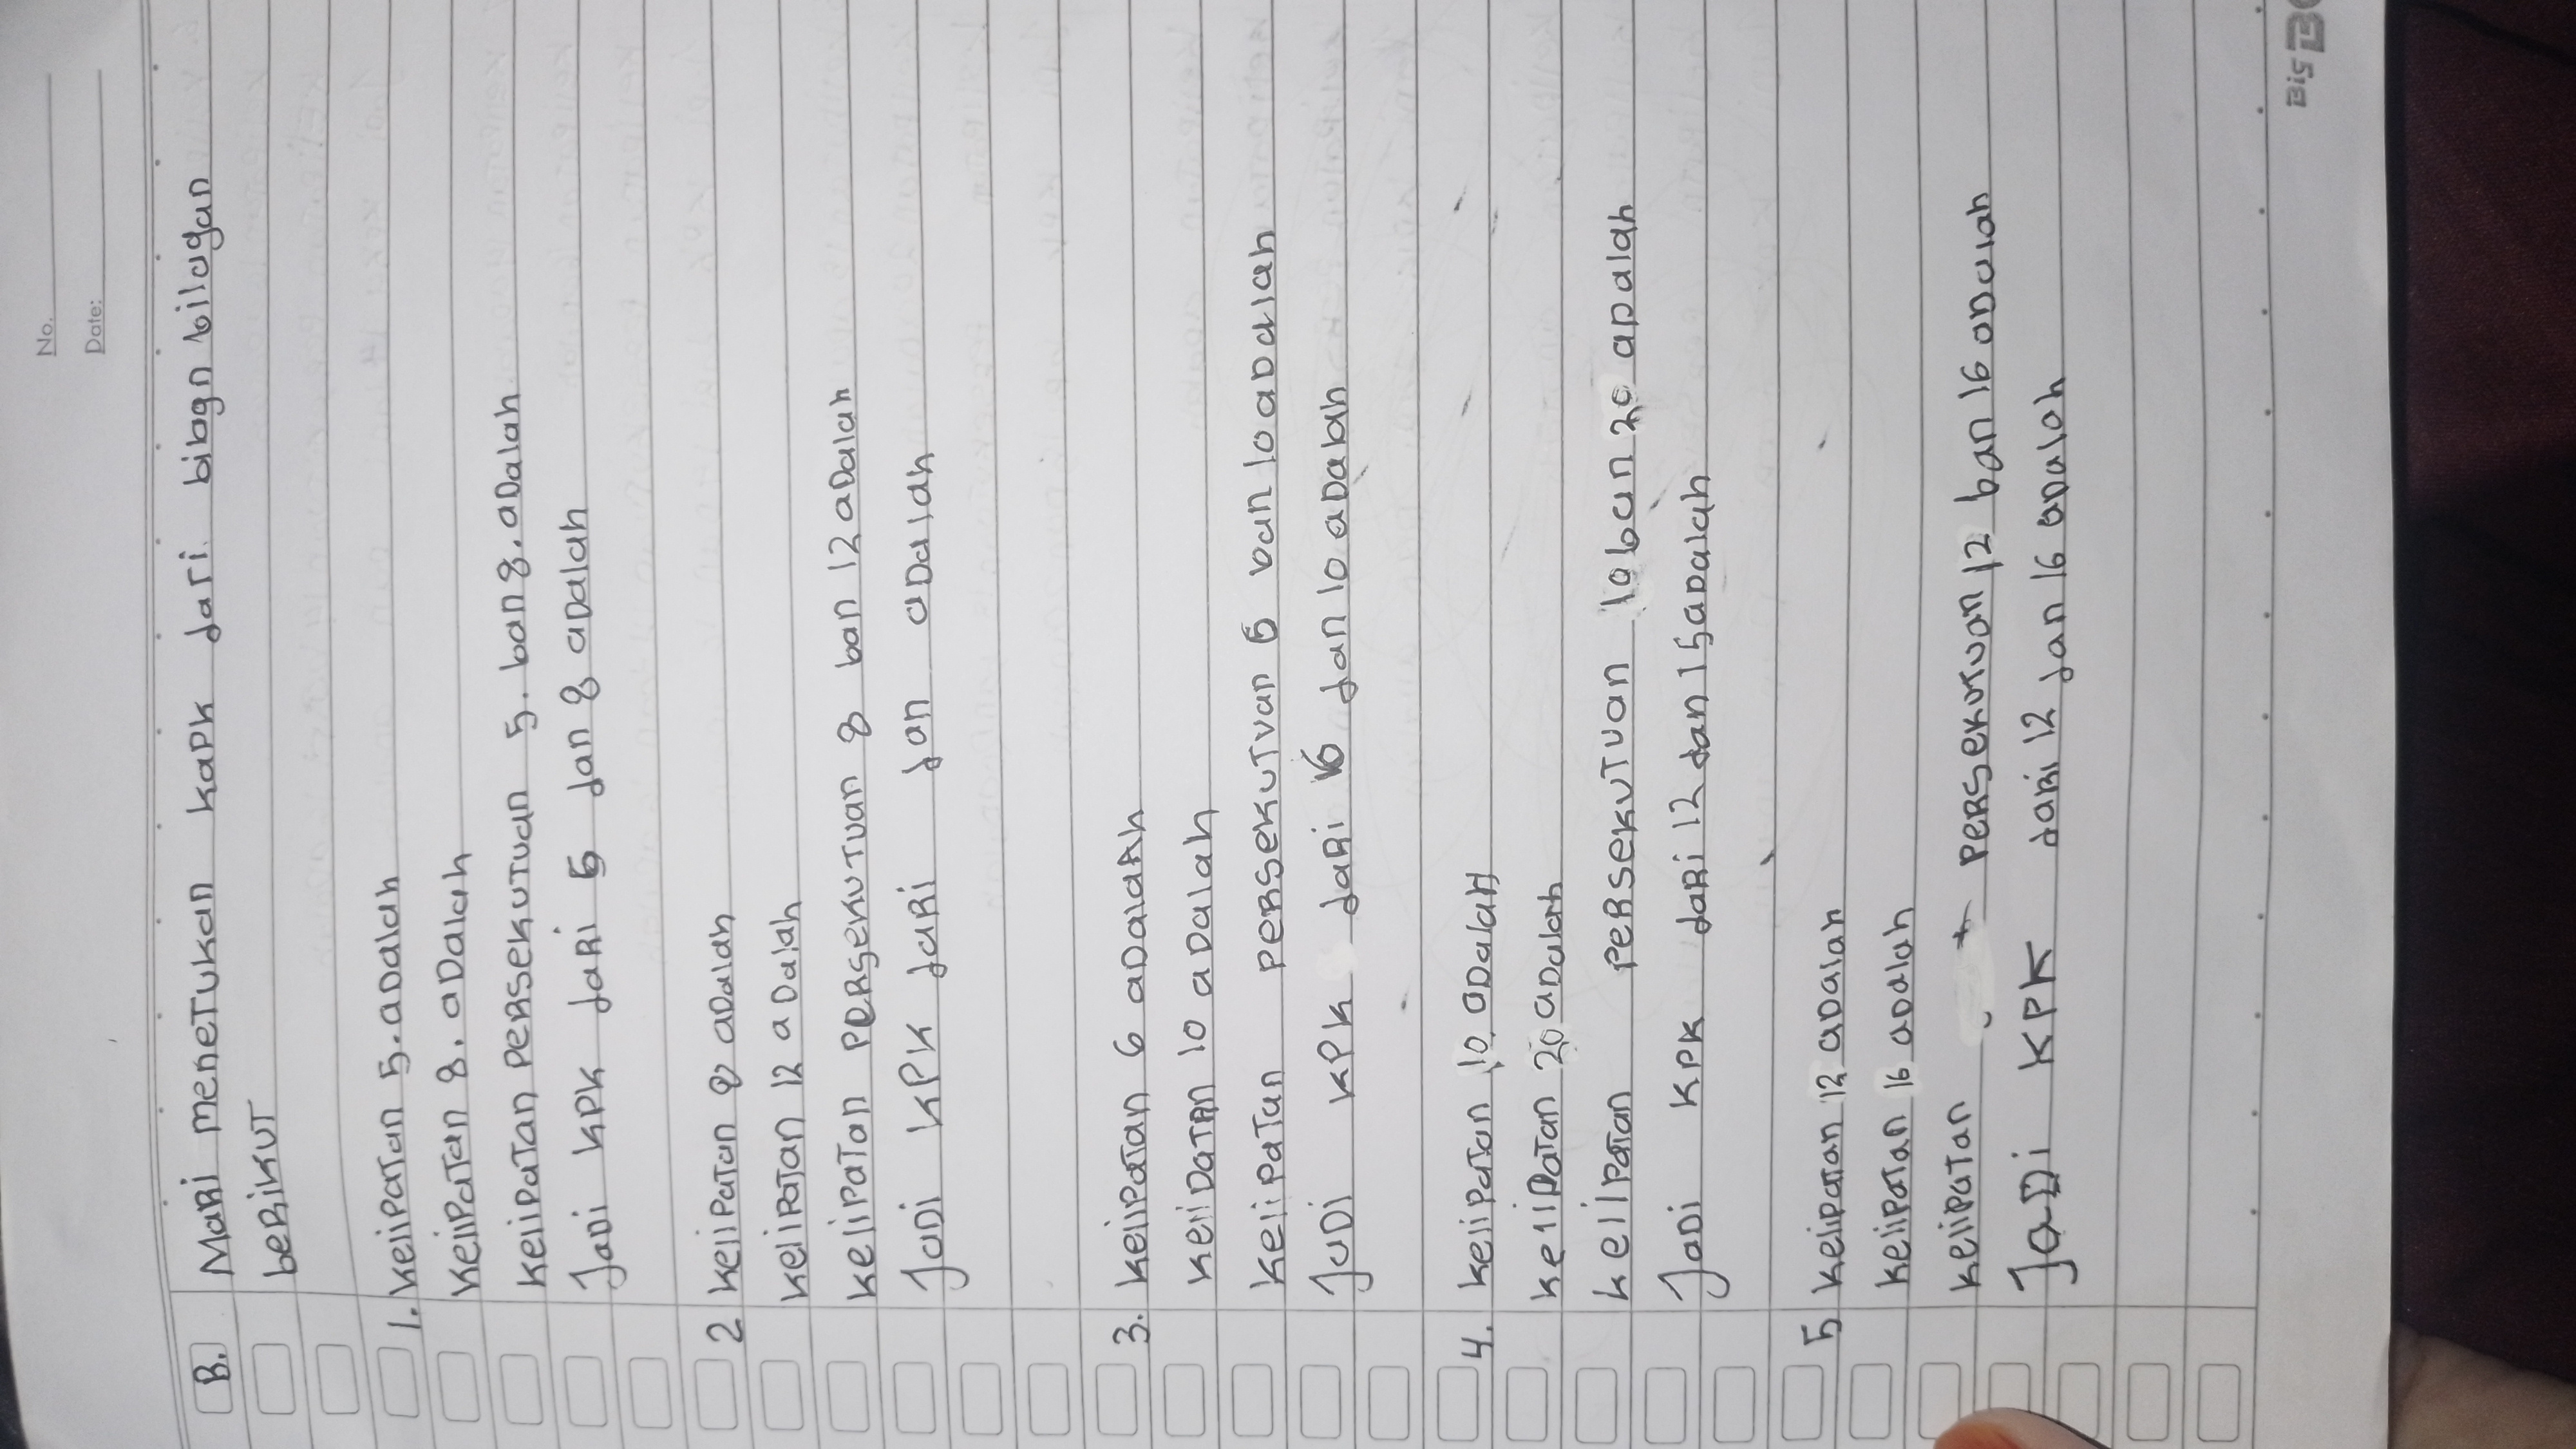 No.
Date:
B. Mari menetukan kapk dari bilagn bilagan
berikut
1. kelipatan 5. adalah
kelipatan 8. adalah
kelipatan persekutuan 5. ban 8. adalah
Jadi kpk dari 5 dan 8 adalah
2 kelipatan 8 adalah
kelipatan 12 adalah
kelipatan persekutuan 8 ban 12 adalah
Jadi KPK dari dan adalah
3. kelipatan 6 adalaah
kelipatan 10 adalah
kelipatan persekutuan 6 ban 10 adalah
Jadi KPK dari 6 dan 10 adalah
4. kelipatan 10 adalah
kelipatan 20 adalah
kelipatan persekutuan 10 ban 20 adalah
Jadi KPK dari 12 dan 15 adalah
5 kelipatan 12 adalah
kelipatan 16 adalah
kelipatan persekutuan 12 ban 16 adalah
Jadi KPK dari 12 dan 16 adalah
Big